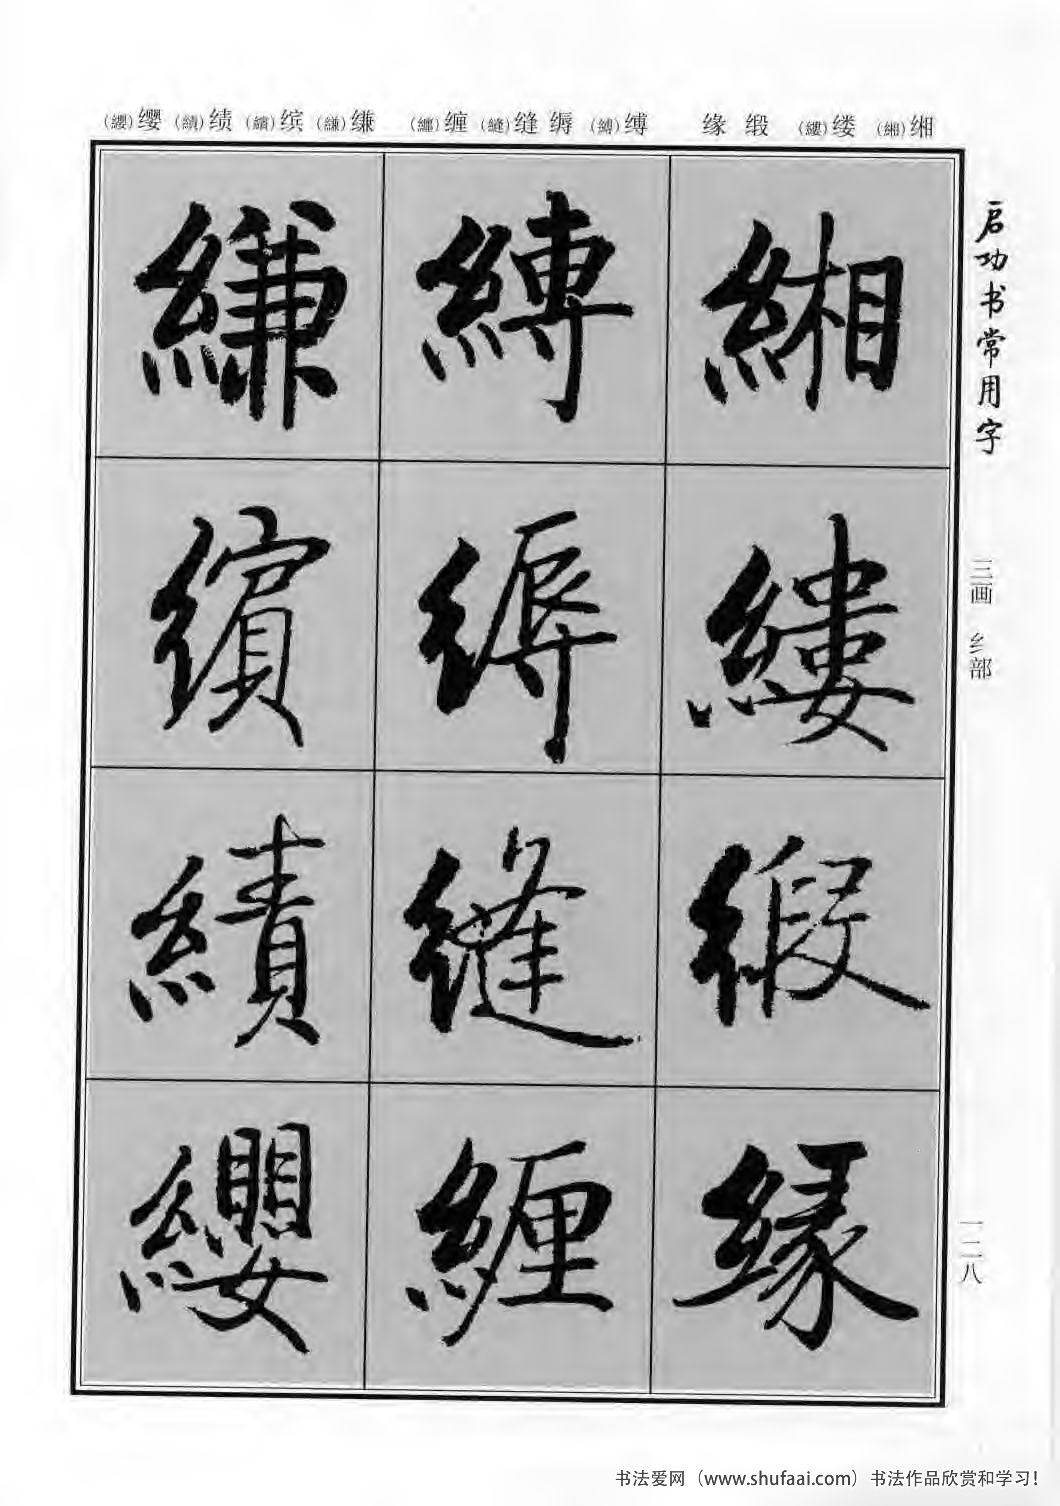 (纓)缨 (績)绩 (繽)缤 (縑)缣 (纏)缠 (縫)缝 缛 (縛)缚 缘 缎 (縷)缕 (緗)缃
启功书常用字
三画 纟部
一二八
緗
縷
缎
缘
縛
缛
縫
缠
縑
繽
績
纓
书法爱网（www.shufaai.com）书法作品欣赏和学习！